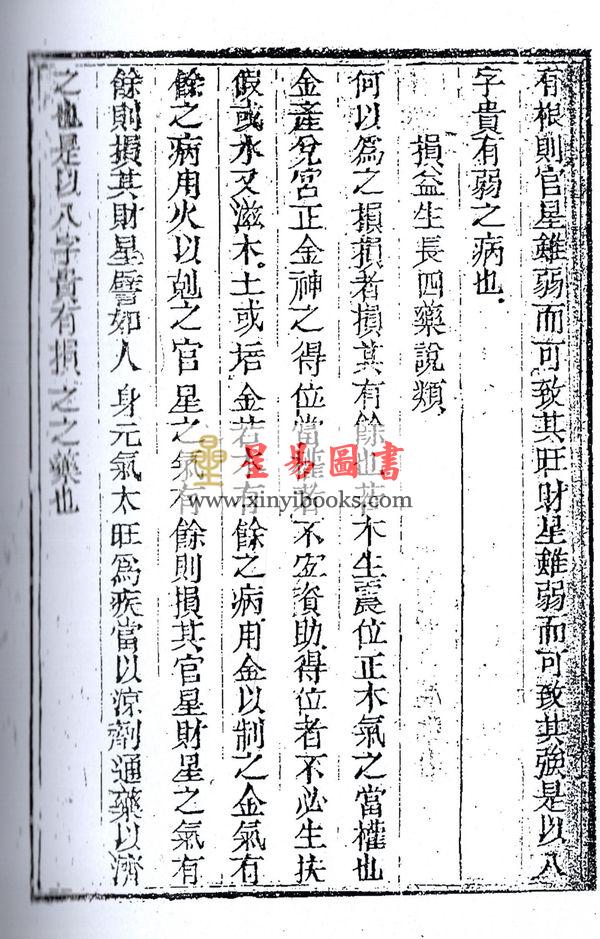 有根則官星雖弱而可致其旺財星雖弱而可致其強是以八
字貴有弱之病也
損益生長四藥說類
何以為之損損者損其有餘也若木生震位正木氣之當權也
金產兌宮正金神之得位當權者不宜資助得位者不必生扶
假或水又滋木土或培金若木有餘之病用金以制之金氣有
餘之病用火以剋之官星之氣有餘則損其官星財星之氣有
餘則損其財星譬如人身元氣太旺為疾當以涼劑通藥以濟
之也是以八字貴有損之之藥也
星易圖書
www.xinyibooks.com